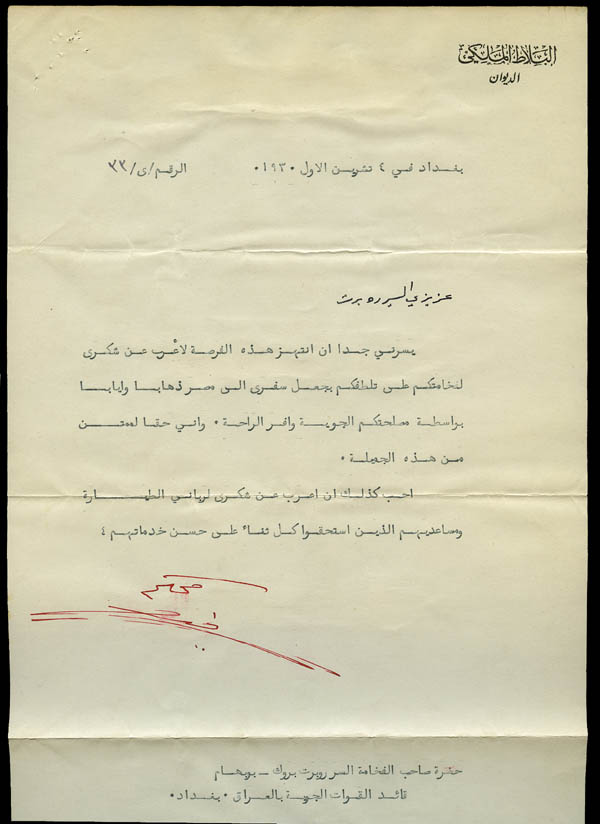 البلاط الملكي
الديوان
بغداد في ٤ تشرين الاول ١٩٣٠٠
الرقم/ى/٣٣
عزيزي السير روبرت
يسرني جدا ان انتهز هذه الفرصة لأعرب عن شكرى
لفخامتكم على تلطفكم بجعل سفرى الى مصر ذهابا وايابا
بواسطة مصلحتكم الجوية وافر الراحة ٠ واني حقا لممتن
من هذه الجميلة ٠
احب كذلك ان اعرب عن شكرى لربانى الطيارة
ومساعديهم الذين استحقوا كل ثناء على حسن خدماتهم ٤
حضرة صاحب الفخامة السر روبرت بروك ـ بوبهام
قائد القوات الجوية بالعراق ٠ بغداد٠